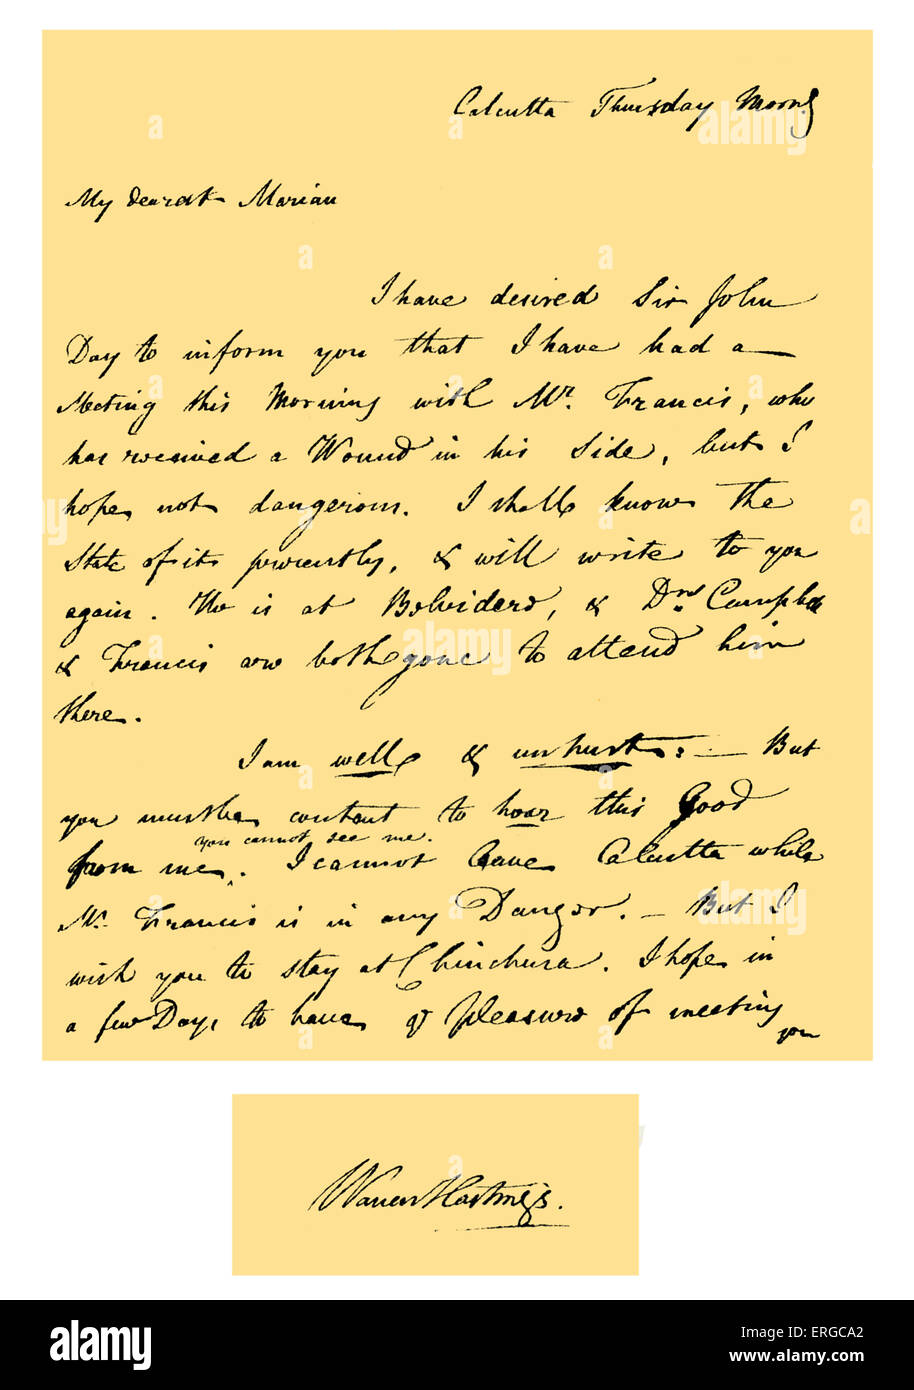 Calcutta Thursday Morng
My dearest Marian
I have desired Sir John
Day to inform you that I have had a
Meeting this Morning with Mr. Francis, who
has received a Wound in his Side, but I
hope not dangerous. I shall know the
State of it presently, & will write to you
again. He is at Belvidere, & Drs Campbell
& Francis are both gone to attend him
there.
I am well & unhurt: — But
you must be content to hear this Good
you cannot see me.
from me. I cannot leave Calcutta while
Mr. Francis is in any Danger. — But I
wish you to stay at Chinchura. I hope in
a few Days to have ye pleasure of meeting
you
Warren Hastings.
alamy
Image ID: ERGCA2
www.alamy.com